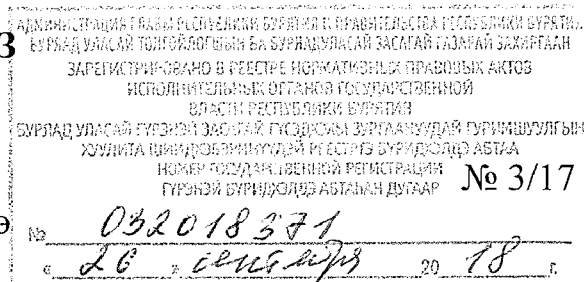 АДМИНИСТРАЦИЯ ГЛАВЫ РЕСПУБЛИКИ БУРЯТИЯ И ПРАВИТЕЛЬСТВА РЕСПУБЛИКИ БУРЯТИЯ
БУРЯАД УЛАСАЙ ТОЛГОЙЛОГШЫН БА БУРЯАД УЛАСАЙ ЗАСАГАЙ ГАЗАРАЙ ЗАХИРГААН
З
ЗАРЕГИСТРИРОВАНО В РЕЕСТРЕ НОРМАТИВНЫХ ПРАВОВЫХ АКТОВ
ИСПОЛНИТЕЛЬНЫХ ОРГАНОВ ГОСУДАРСТВЕННОЙ
ВЛАСТИ РЕСПУБЛИКИ БУРЯТИЯ
БУРЯАД УЛАСАЙ ГҮРЭНЭЙ ЗАСАГАЙ ГҮЙСЭДХЭХЫ ЗУРГААНУУДАЙ ГУРИМШУУЛГЫН
ХУУЛИТА РЕЕСТРТЭ БҮРИДХЭЛДЭ АБТАА
НОМЕР ГОСУДАРСТВЕННОЙ РЕГИСТРАЦИИ
ГҮРЭНЭЙ БҮРИДХЭЛДЭ АБТАҺАН ДУГААР
№ 3/17
№ 032018371
« 26 » сентября 20 18 г.